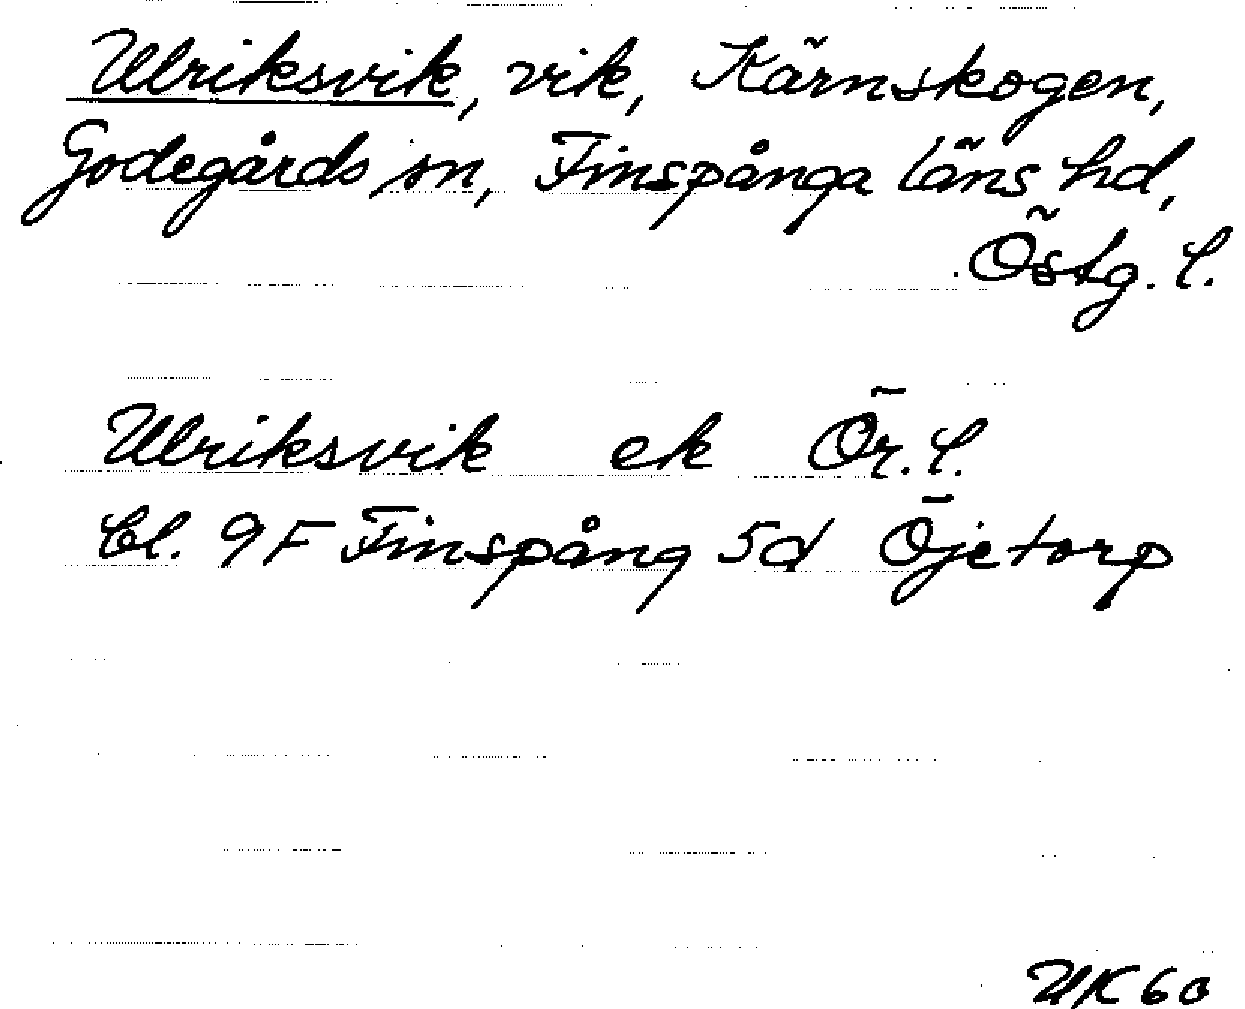 Ulriksvik, vik, Kärnskogen,
Godegårds sn, Finspånga läns hd,
Östg. l.
Ulriksvik ek Ör. l.
Bl. 9F Finspång 5d Öjetorp
UK60